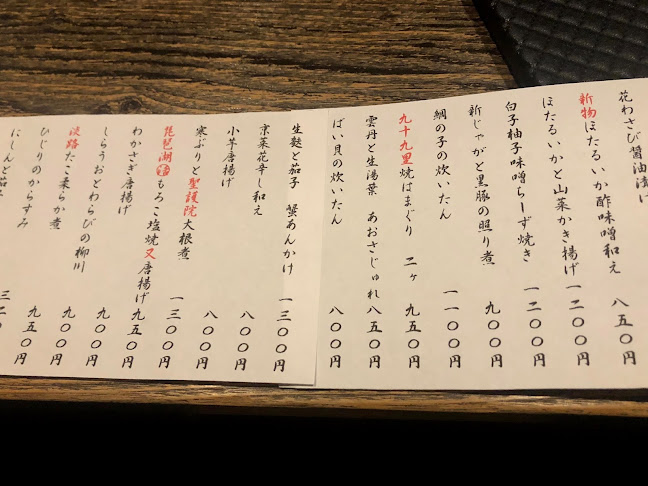 花わさび醤油漬け
新物ほたるいか酢味噌和え 八五〇円
ほたるいかと山菜かき揚げ 一二〇〇円
白子柚子味噌ちーず焼き 一二〇〇円
新じゃがと黒豚の照り煮 九〇〇円
鯛の子の炊いたん 一一〇〇円
九十九里焼はまぐり 二ヶ 九五〇円
雲丹と生湯葉 あおさじゅれ 八五〇円
ばい貝の炊いたん 八〇〇円
生麩と茄子 蟹あんかけ 一三〇〇円
京菜花辛し和え 八〇〇円
小芋唐揚げ 八〇〇円
寒ぶりと聖護院大根煮 一三〇〇円
琵琶湖もろこ塩焼又唐揚げ 九五〇円
わかさぎ唐揚げ 九〇〇円
しらうおとわらびの柳川 九〇〇円
淡路たこ柔らか煮 九五〇円
ひじりのからすみ
にしんと茄子